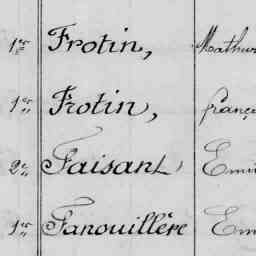 1er Frotin, Mathur
1er Frotin, franç
2e Faisant, Emi
1er Fanouillère Em